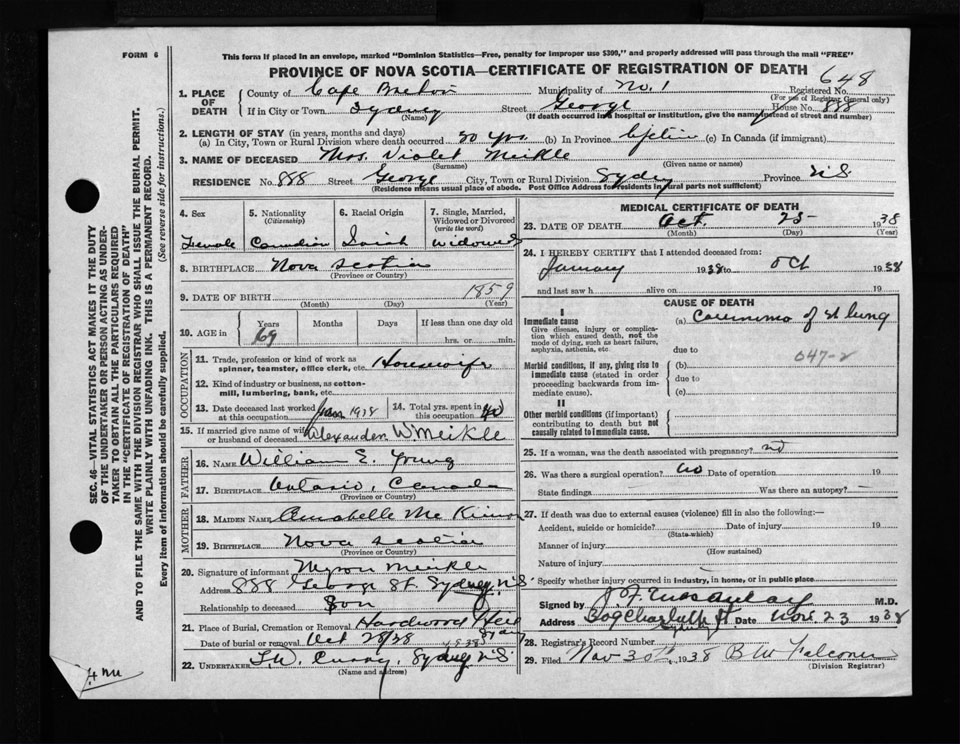 FORM 6
This form if placed in an envelope, marked "Dominion Statistics—Free, penalty for improper use $300," and properly addressed will pass through the mail "FREE"
PROVINCE OF NOVA SCOTIA—CERTIFICATE OF REGISTRATION OF DEATH
648
1. PLACE OF DEATH
County of Cape Breton Municipality of No. 1 Registered No.
(For use of Registrar General only)
If in City or Town Sydney Street George House No. 888
(Name) (If death occurred in hospital or institution, give the name instead of street and number)
2. LENGTH OF STAY (in years, months and days)
(a) In City, Town or Rural Division where death occurred 50 yrs. (b) In Province Lifetime (c) In Canada (if immigrant)
3. NAME OF DECEASED Mrs. Violet Meikle
(Surname) (Given name or names)
RESIDENCE No. 888 Street George City, Town or Rural Division Sydney Province N.S
(Residence means usual place of abode. Post Office Address for residents in rural parts not sufficient)
4. Sex
Female
5. Nationality (Citizenship)
Canadian
6. Racial Origin
7. Single, Married, Widowed or Divorced (write the word)
Widowed
8. BIRTHPLACE Nova Scotia
(Province or Country)
9. DATE OF BIRTH 1859
(Month) (Day) (Year)
10. AGE in Years Months Days If less than one day old
69 hrs. or min.
OCCUPATION
11. Trade, profession or kind of work as spinner, teamster, office clerk, etc. Housewife
12. Kind of industry or business, as cotton-mill, lumbering, bank, etc.
13. Date deceased last worked at this occupation Jan 1938
14. Total yrs. spent in this occupation 40
15. If married give name of wife or husband of deceased Alexander W. Meikle
FATHER
16. NAME William E. Young
17. BIRTHPLACE Ontario, Canada
(Province or Country)
MOTHER
18. MAIDEN NAME Annabelle McKinnon
19. BIRTHPLACE Nova Scotia
(Province or Country)
20. Signature of informant Myron Meikle
Address 888 George St. Sydney, N.S
Relationship to deceased Son
21. Place of Burial, Cremation or Removal Hardwood Hill Sydney
Date of burial or removal Oct 28/38
22. UNDERTAKER Curry, Sydney N.S
(Name and address)
MEDICAL CERTIFICATE OF DEATH
23. DATE OF DEATH Oct. 25 1938
(Month) (Day) (Year)
24. I HEREBY CERTIFY that I attended deceased from:
January 1938 to Oct 1938
and last saw h alive on 19
CAUSE OF DEATH
I
Immediate cause
Give disease, injury or complication which caused death, not the mode of dying, such as heart failure, asphyxia, asthenia, etc
(a) Carcinoma of lung
due to
047-2
Morbid conditions, if any, giving rise to immediate cause (stated in order proceeding backwards from immediate cause).
(b)
due to
(c)
II
Other morbid conditions (if important) contributing to death but not causally related to immediate cause.
25. If a woman, was the death associated with pregnancy? no
26. Was there a surgical operation? no Date of operation 19
State findings Was there an autopsy?
27. If death was due to external causes (violence) fill in also the following:—
Accident, suicide or homicide? Date of injury 19
(State which)
Manner of injury
(How sustained)
Nature of injury
Specify whether injury occurred in industry, in home, or in public place
Signed by M.D.
Address Charlotte St. Date Nov. 23 1938
28. Registrar's Record Number
29. Filed Nov 30th 1938 B W Falconer
(Division Registrar)
SEC. 46—VITAL STATISTICS ACT MAKES IT THE DUTY
OF THE UNDERTAKER OR PERSON ACTING AS UNDER-
TAKER TO OBTAIN ALL THE PARTICULARS REQUIRED
IN THE "CERTIFICATE OF REGISTRATION OF DEATH"
AND TO FILE THE SAME WITH THE DIVISION REGISTRAR WHO SHALL ISSUE THE BURIAL PERMIT.
WRITE PLAINLY WITH UNFADING INK. THIS IS A PERMANENT RECORD.
Every item of information should be carefully supplied. (See reverse side for instructions.)